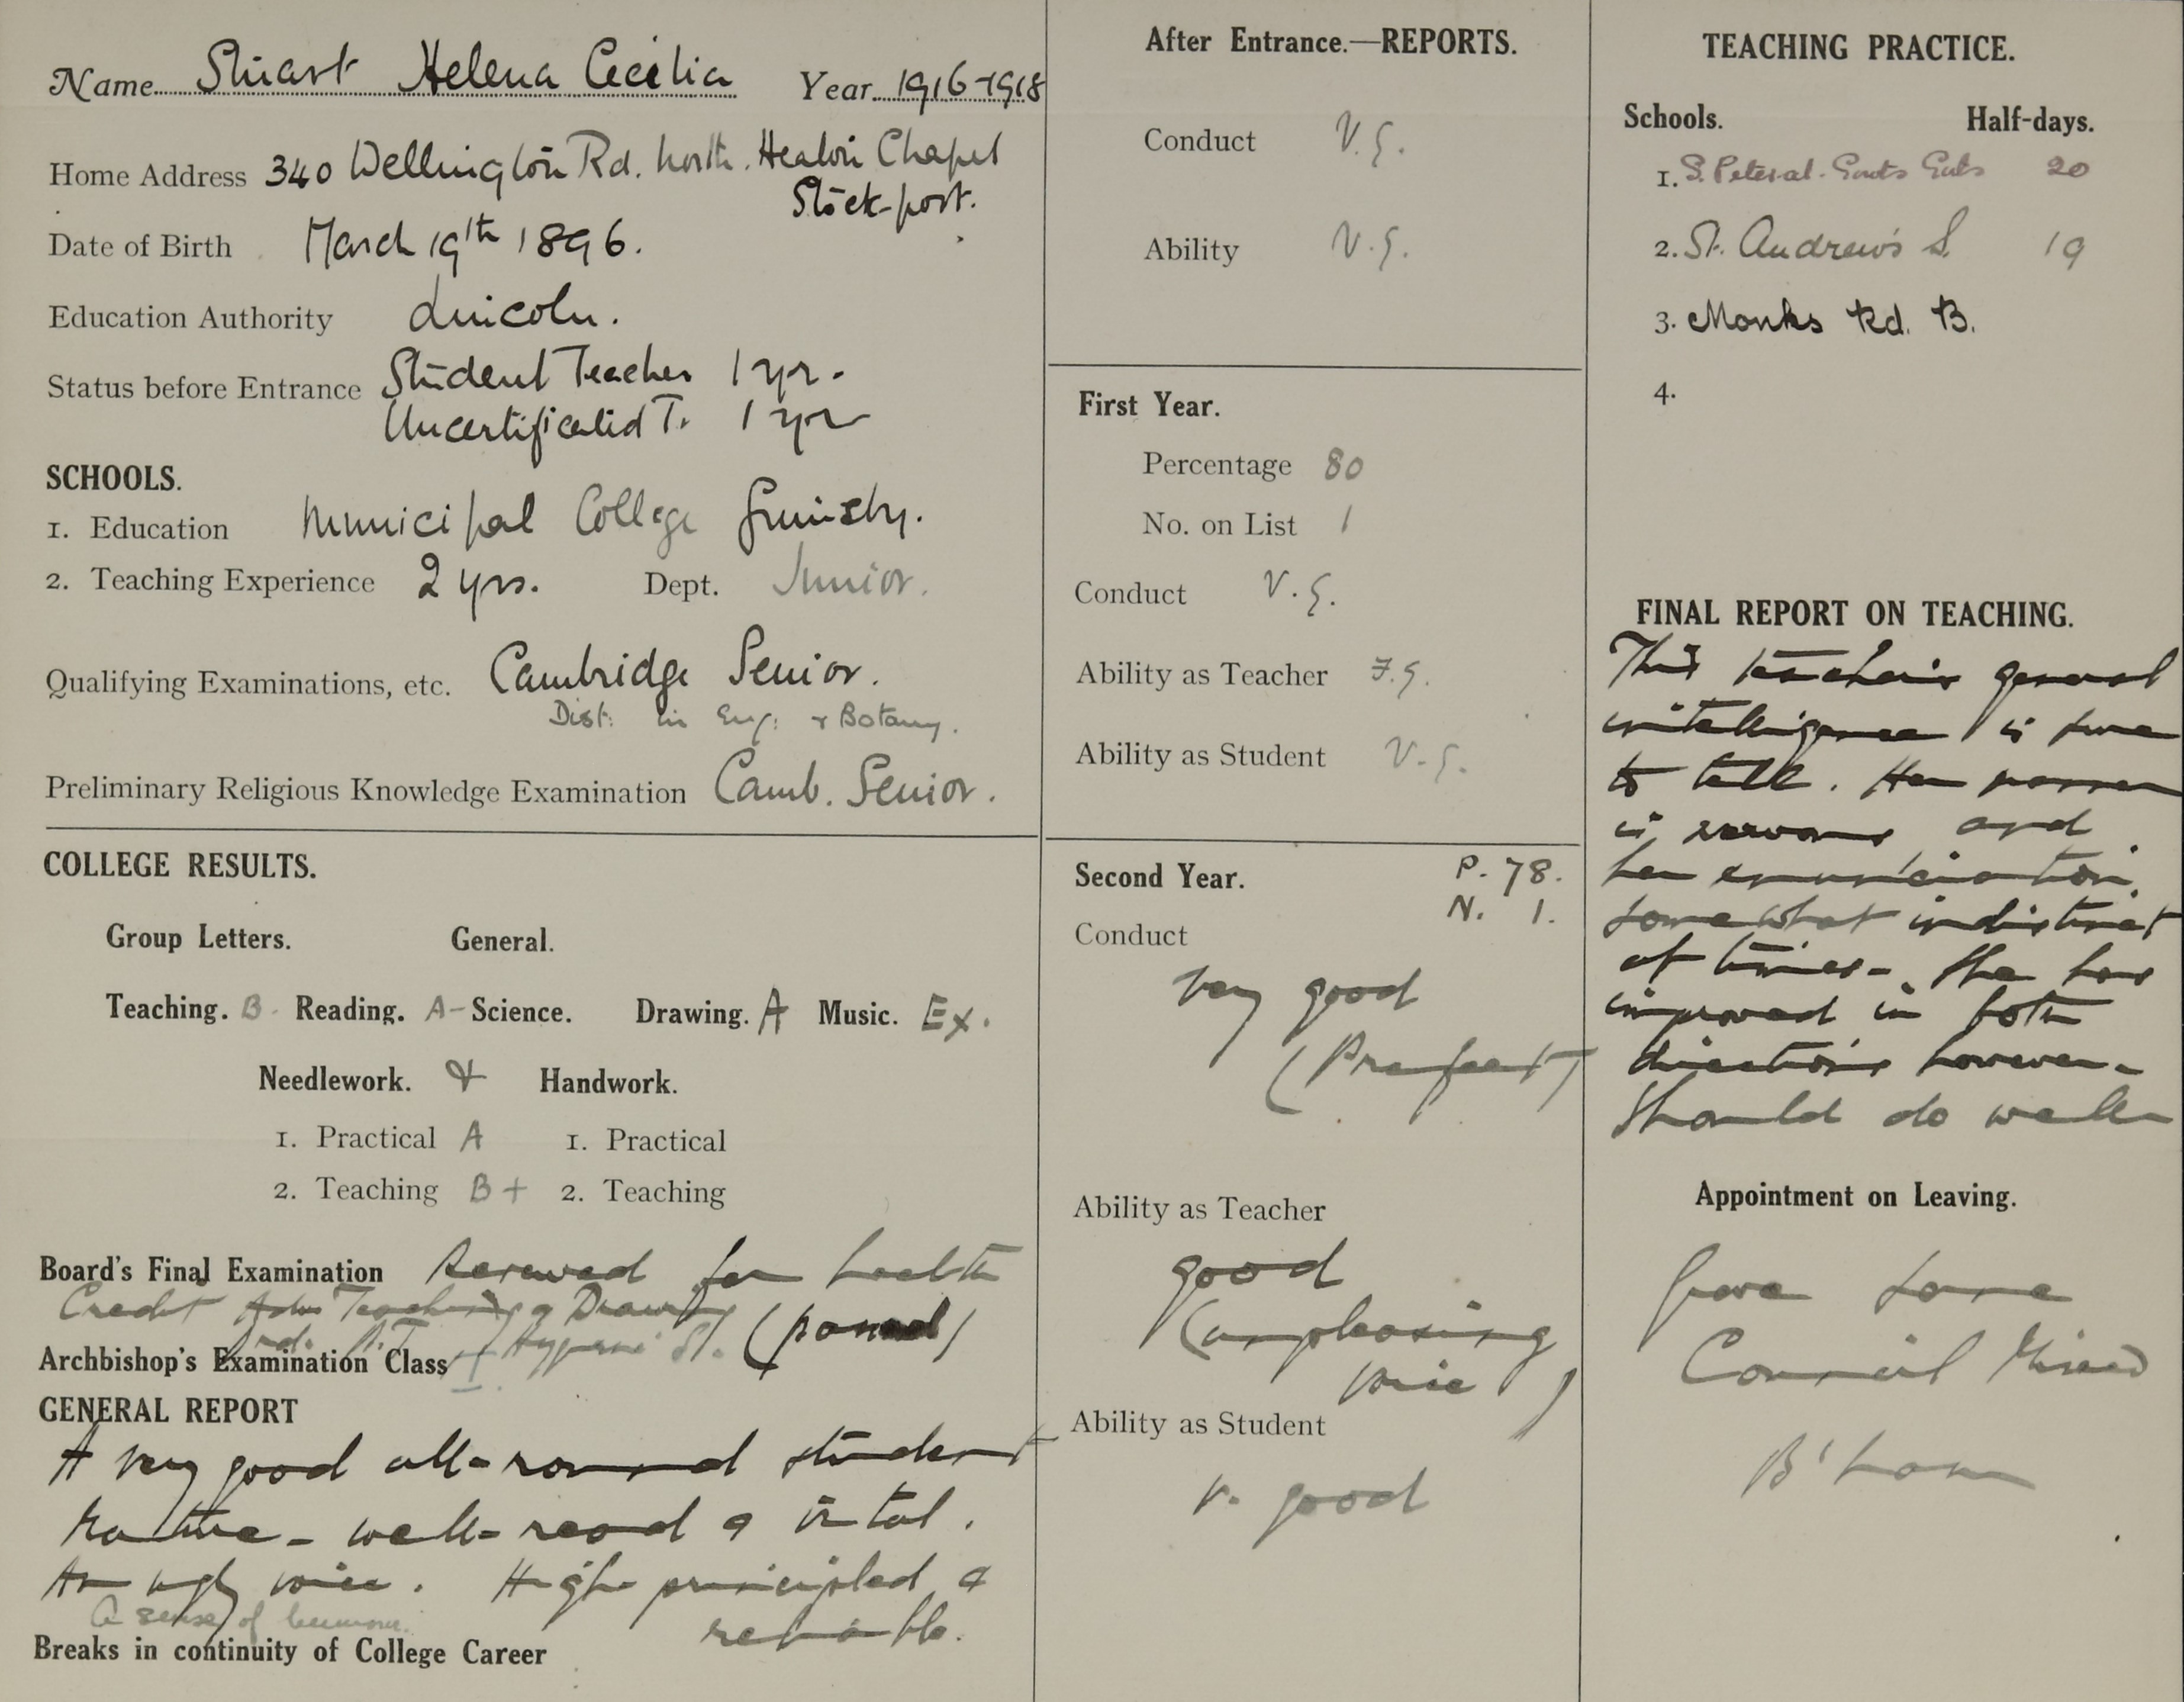 Name Stuart Helena Cecilia Year 1916-1918
Home Address 340 Wellington Rd. North. Heaton Chapel
Stockport.
Date of Birth March 19th 1896.
Education Authority Lincoln.
Status before Entrance Student Teacher 1 yr.
Uncertificated T. 1 yr
SCHOOLS.
1. Education Municipal College Grimsby.
2. Teaching Experience 2 yrs. Dept. Junior.
Qualifying Examinations, etc. Cambridge Senior.
Dist: in Eng: & Botany.
Preliminary Religious Knowledge Examination Camb. Senior.
COLLEGE RESULTS.
Group Letters. General.
Teaching. B. Reading. A- Science. Drawing. A Music. Ex.
Needlework. Handwork.
1. Practical A 1. Practical
2. Teaching B+ 2. Teaching
Board's Final Examination for health
Credit Adv Teaching & Drawing
(passed)
Hygiene
Archbishop's Examination Class I.
GENERAL REPORT
A very good all-round student
well-read &
An ugly voice. High principled &
reliable.
A sense of humour.
Breaks in continuity of College Career
After Entrance.—REPORTS.
Conduct V.G.
Ability V.G.
First Year.
Percentage 80
No. on List 1
Conduct V.G.
Ability as Teacher F.G.
Ability as Student V.G.
Second Year. P. 78.
N. 1.
Conduct
Very good
(Prefect)
Ability as Teacher
good
(unpleasing
voice)
Ability as Student
v. good
TEACHING PRACTICE.
Schools. Half-days.
1. S. Peter at Gowts Girls 20
2. St. Andrew's S. 19
3. Monks Rd. B.
4.
FINAL REPORT ON TEACHING.
This teacher's general
intelligence is sure
to tell. Her manner
is nervous and
her enunciation
somewhat indistinct
at times. She has
improved in both
directions however.
Should do well
Appointment on Leaving.
Lane
Council Mixed
B'ham